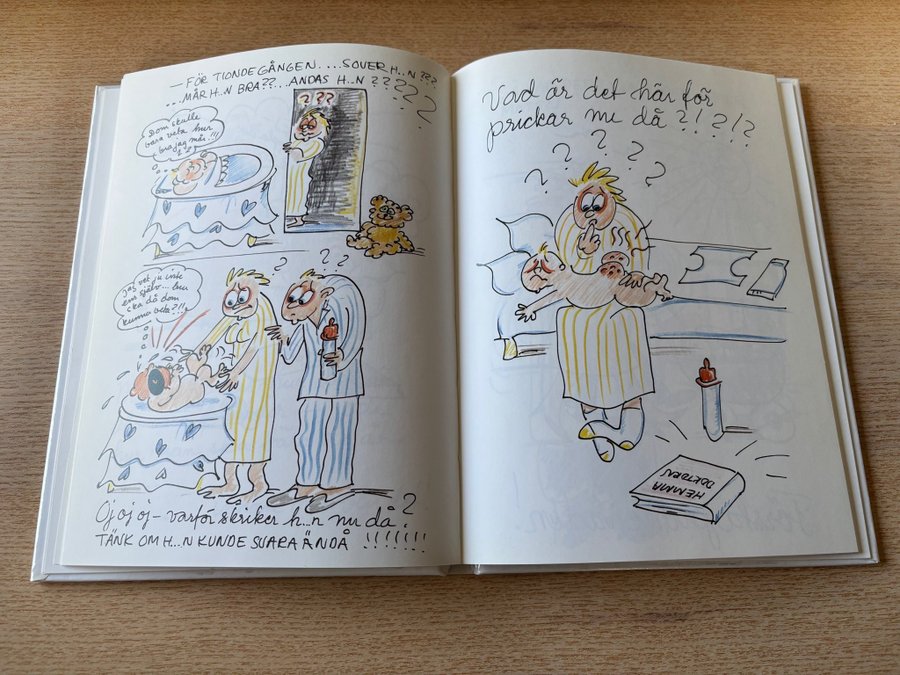 — FÖR TIONDE GÅNGEN. ...SOVER H..N ???
...MÅR H..N BRA??...ANDAS H..N ? ? ? ? ?
Dom skulle
bara veta hur
bra jag mår...!!!
? ? ?
Jag vet ju inte
ens själv... hur
ska då dom
kunna veta?!!
?
? ? ?
Oj oj oj – varför skriker h..n nu då?
TÄNK OM H..N KUNDE SVARA ÄNDÅ !!!!!!!
Vad är det här för
prickar nu då ?!?!?
? ? ? ? ? ?
HEMMA
DOKTORN